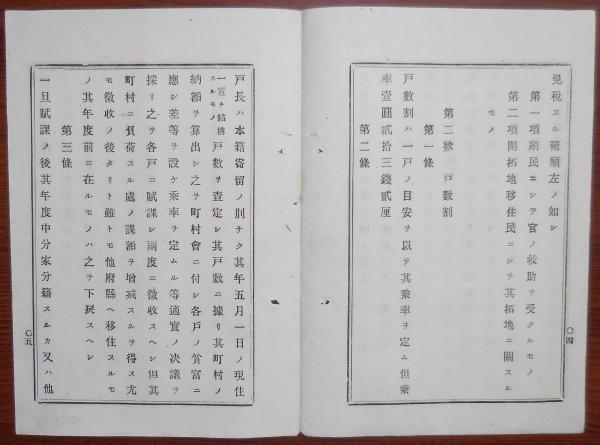 免稅スル種類左ノ如シ
第一項窮民ニシテ官ノ救助ヲ受クルモノ
第二項開拓地移住民ニシテ其拓地ニ關スル
モノ
第二號 戶數割
第一條
戶數割ハ一戶ノ目安ヲ以テ其乘率ヲ定ム但乘
率壹圓貳拾三錢貳厘
第二條
〇四
戶長ハ本籍寄留ノ別ナク其年五月一日ノ現住
一竈ヲ結構スルモノ戶數ヲ查定シ其戶數ニ據リ其町村ノ
納額ヲ算出シ之ヲ町村會ニ付シ各戶ノ貧富ニ
應シ差等ヲ設ケ乘率ヲ定ムル等適實ノ决議ヲ
採リ之ヲ各戶ニ賦課シ兩度ニ徵收スヘシ但其
町村ニ負荷スル處ノ課額ヲ增减スルヲ得ス尤
モ徵收ノ後タリト雖トモ他府縣ヘ移住スルモ
ノ其年度前ニ在ルモノハ之ヲ下戾スヘシ
第三條
一旦賦課ノ後其年度中分家分籍スルカ又ハ他
〇五